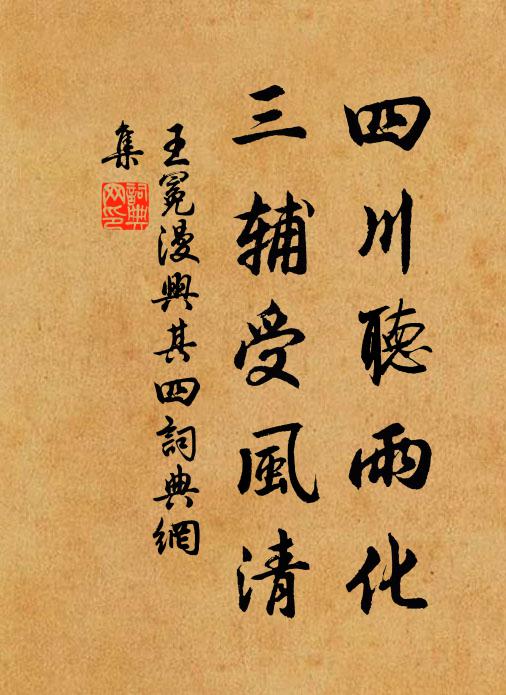 四川聽雨化
三辅受風清
王冕漫興其四詞典網
集
詞典
网印